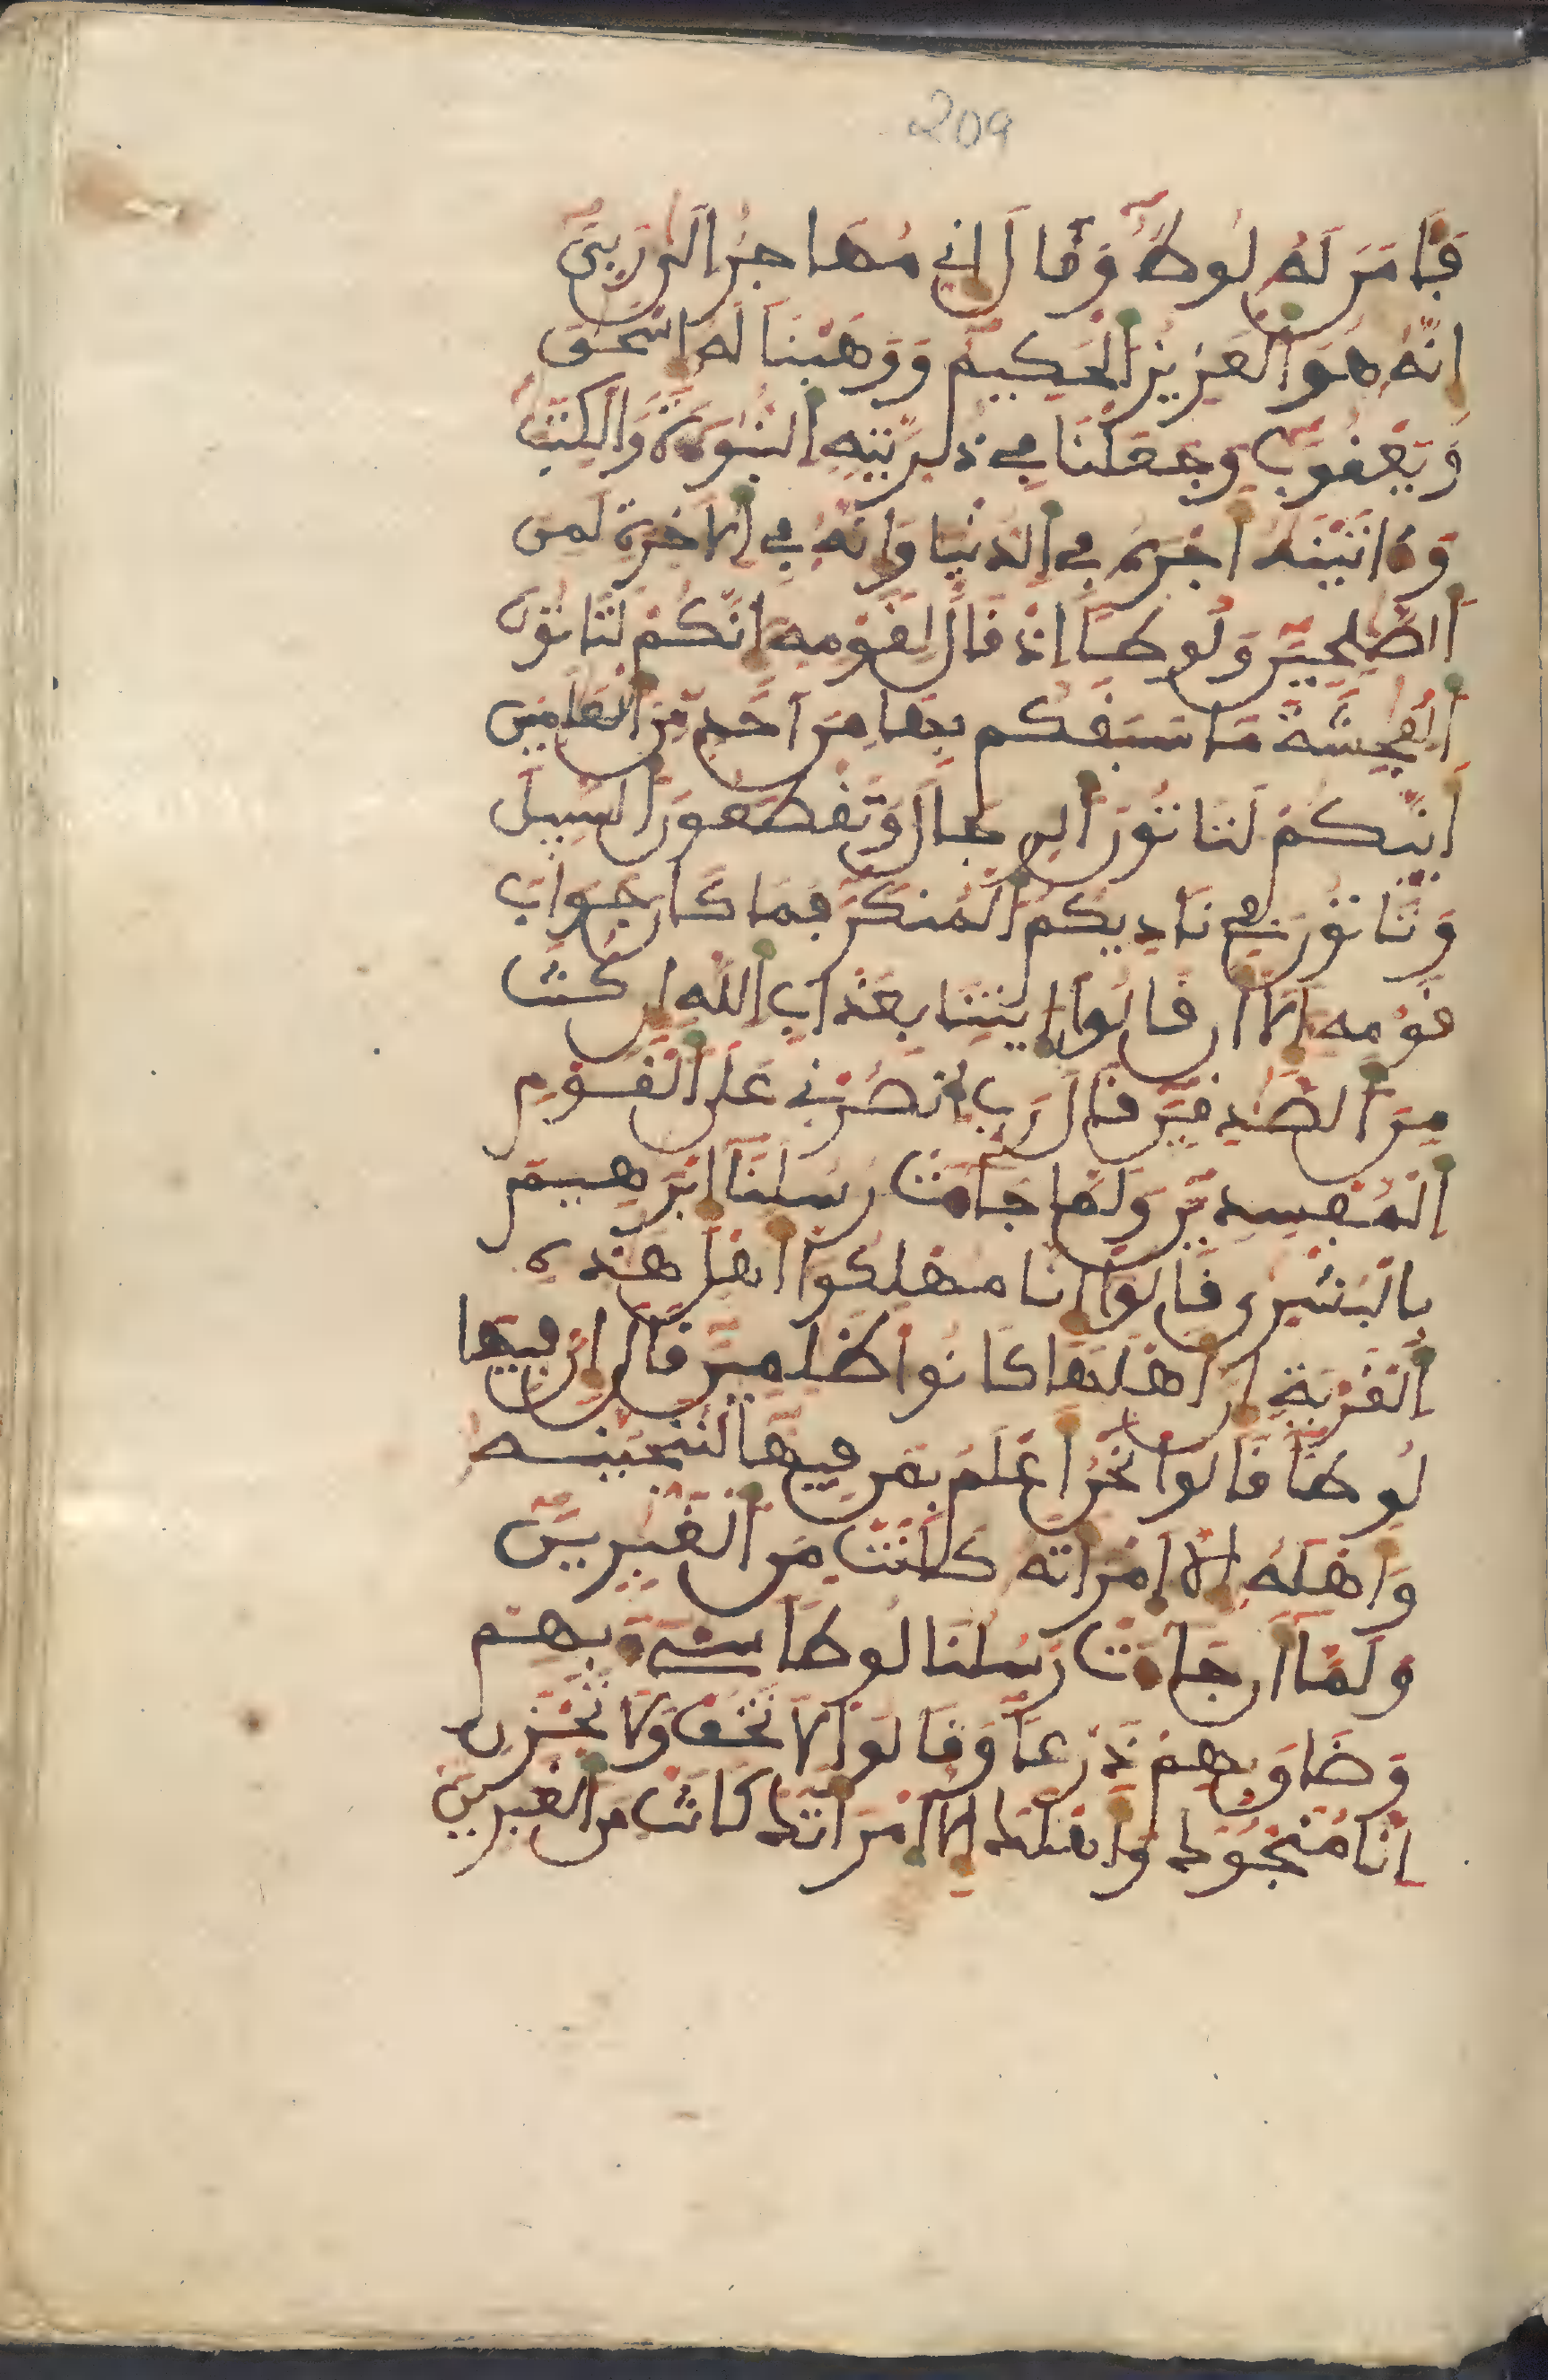 209
فَـَٔامَنَ لَهُ لُوطٌ وَقَالَ إِنِّي مُهَاجِرٌ إِلَىٰ رَبِّيَ
إِنَّهُ هُوَ اَلْعَزِيزُ اَلْحَكِيمُ وَوَهَبْنَا لَهُ إِسْحَٰقَ
وَيَعْقُوبَ وَجَعَلْنَا فِي ذُرِّيَّتِهِ اِلنُّبُوَّةَ وَالْكِتَٰبَ
وَءَاتَيْنَٰهُ أَجْرَهُ فِي اِلدُّنْيَا وَإِنَّهُ فِي اِلَاخِرَةِ لَمِنَ
اَلصَّٰلِحِينَ وَلُوطًا إِذْ قَالَ لِقَوْمِهِ إِنَّكُمْ لَتَاتُونَ
اَلْفَٰحِشَةَ مَا سَبَقَكُم بِهَا مِنَ اَحَدٍ مِّنَ اَلْعَٰلَمِينَ
أَئِنَّكُمْ لَتَاتُونَ اَلرِّجَالَ وَتَقْطَعُونَ اَلسَّبِيلَ
وَتَاتُونَ فِي نَادِيكُمُ اُلْمُنكَرَ فَمَا كَانَ جَوَابَ
قَوْمِهِ إِلَّا أَن قَالُوا اُيتِنَا بِعَذَابِ اِللَّهِ إِن كُنتَ
مِنَ اَلصَّٰدِقِينَ قَالَ رَبِّ اِنصُرْنِي عَلَى اَلْقَوْمِ
اِلْمُفْسِدِينَ وَلَمَّا جَاءَتْ رُسُلُنَا إِبْرَٰهِيمَ
بِالْبُشْرَىٰ قَالُوا إِنَّا مُهْلِكُوا أَهْلِ هَٰذِهِ
اِلْقَرْيَةِ إِنَّ أَهْلَهَا كَانُوا ظَٰلِمِينَ قَالَ إِنَّ فِيهَا
لُوطًا قَالُوا نَحْنُ أَعْلَمُ بِمَن فِيهَا لَنُنَجِّيَنَّهُ
وَأَهْلَهُ إِلَّا اَمْرَأَتَهُ كَانَتْ مِنَ اَلْغَٰبِرِينَ
وَلَمَّا أَن جَاءَتْ رُسُلُنَا لُوطًا سِيءَ بِهِمْ
وَضَاقَ بِهِمْ ذَرْعًا وَقَالُوا لَا تَخَفْ وَلَا تَحْزَنِ
اِنَّا مُنَجُّوكَ وَأَهْلَكَ إِلَّا اَمْرَأَتَكَ كَانَتْ مِنَ اَلْغَٰبِرِينَ